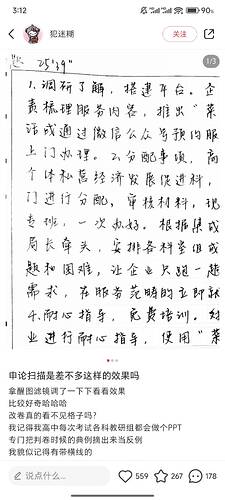 3:12
90%
犯迷糊
关注
1/3
25'39"
1.调研了解,搭建平台。企
责梳理服务内容,推出“菜
活或通过微信公众号预约服
上门办理。2.分配事项,高
个体私营经济发展促进科,
门进行分配,审核材料,现
专班,一次办好。根据集成
局长牵头,安排各科室组成
题和困难,让企业只跑一趟
需求,在服务范畴的立即就
4.耐心指导,免费培训。对
业进行耐心指导,使用“菜
申论扫描是差不多这样的效果吗
拿醒图滤镜调了一下下看看效果
比较好奇哈哈哈
改卷真的看不见格子吗?
我记得我高中每次考试各科教研组都会做个PPT
专门把判卷时候的典例摘出来当反例
我貌似记得有带横线的
说点什么...
559
267
178